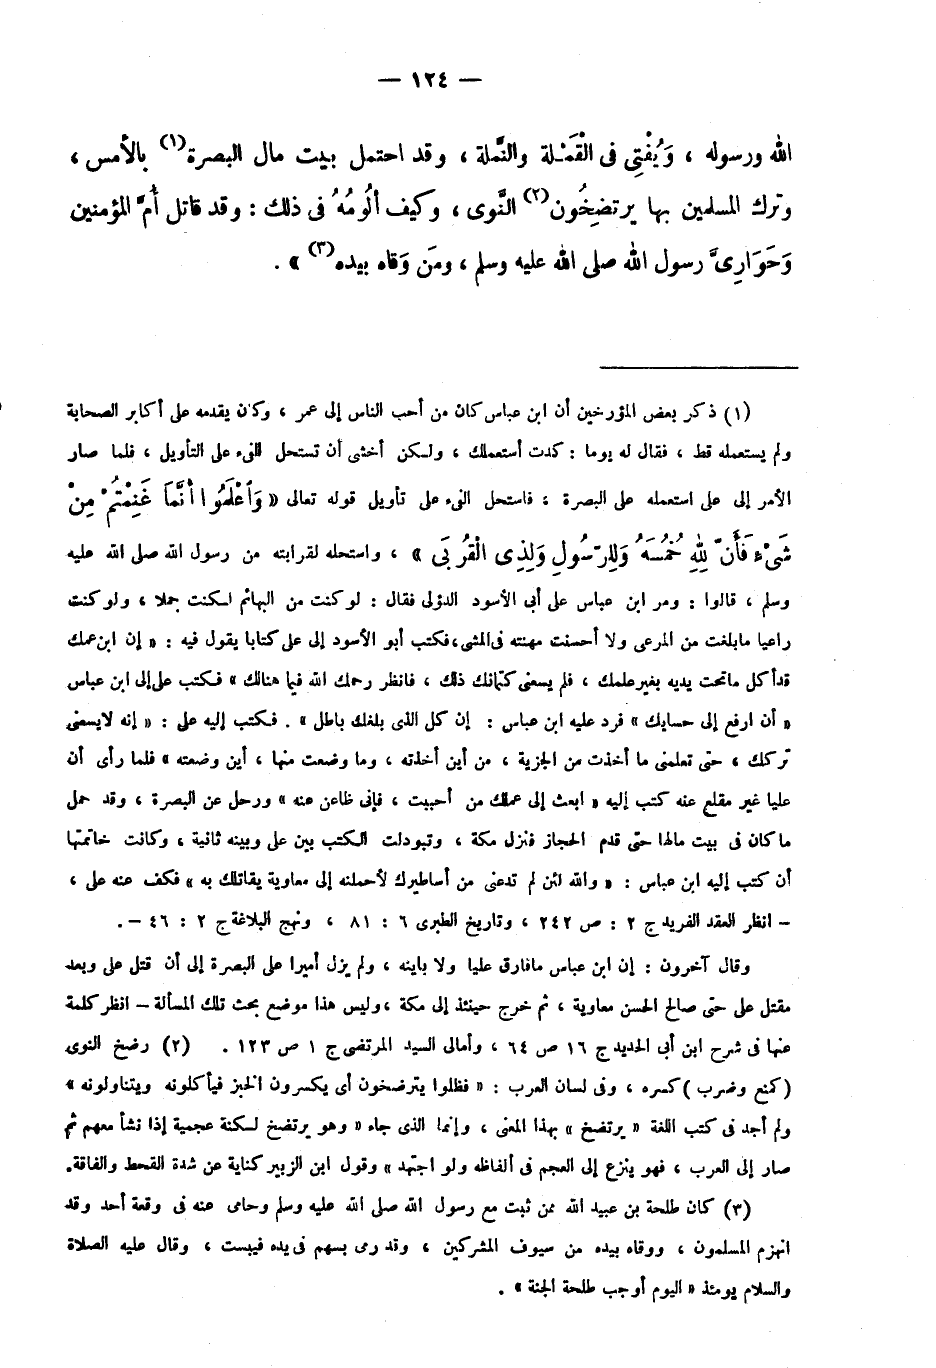 — ١٢٤ —
الله ورسوله ، وَيُفْتِى فى القَمْلة والنَّملة ، وقد احتمل بيت مال البصرة(١) بالأمس ،
وترك المسلمين بها يرتضِخُون(٢) النَّوى ، وكيف ألُومُهُ فى ذلك : وقد قاتل أمَّ المؤمنين
وَحَوَارِىَّ رسول الله صلى الله عليه وسلم ، ومَن وَقاه بيده(٣) » .
(١) ذكر بعض المؤرخين أن ابن عباس كان من أحب الناس إلى عمر ، وكان يقدمه على أكابر الصحابة
ولم يستعمله قط ، فقال له يوما : كدت أستعملك ، ولكن أخشى أن تستحل الفىء على التأويل ، فلما صار
الأمر إلى على استعمله على البصرة ، فاستحل الفىء على تأويل قوله تعالى « وَٱعْلَمُوا أَنَّمَا غَنِمْتُمْ مِنْ
شَىْءٍ فَأَنَّ لِلهِ خُمُسَهُ وَلِلرَّسُولِ وَلِذِى الْقُرْبَى » ، واستحله لقرابته من رسول الله صلى الله عليه
وسلم ، قالوا : ومر ابن عباس على أبى الأسود الدؤلى فقال : لو كنت من البهائم لكنت جملا ، ولو كنت
راعيا ما بلغت من المرعى ولا أحسنت مهنته فى المشى ، فكتب أبو الأسود إلى على كتابا يقول فيه : « إن ابن عمك
قد أكل ما تحت يديه بغير علمك ، فلم يسعنى كتمانك ذلك ، فانظر رحمك الله فيما هنالك » فكتب على إلى ابن عباس
« أن ارفع إلى حسابك » فرد عليه ابن عباس : إن كل الذى بلغك باطل » . فكتب إليه على : « إنه لا يسعنى
تركك ، حتى تعلمنى ما أخذت من الجزية ، من أين أخذته ، وما وضعت منها ، أين وضعته » فلما رأى أن
عليا غير مقلع عنه كتب إليه « ابعث إلى عملك من أحببت ، فإنى ظاعن عنه » ورحل عن البصرة ، وقد حمل
ما كان فى بيت مالها حتى قدم الحجاز فنزل مكة ، وتبودلت الكتب بين على وبينه ثانية ، وكانت خاتمتها
أن كتب إليه ابن عباس : « والله لئن لم تدعنى من أساطيرك لأحملنه إلى معاوية يقاتلك به » فكف عنه على ،
– انظر العقد الفريد ج ٢ : ص ٢٤٢ ، وتاريخ الطبرى ٦ : ٨١ ، ونهج البلاغة ج ٢ : ٤٦ –.
وقال آخرون : إن ابن عباس ما فارق عليا ولا باينه ، ولم يزل أميرا على البصرة إلى أن قتل على وبعد
مقتل على حتى صالح الحسن معاوية ، ثم خرج حينئذ إلى مكة ، وليس هذا موضع بحث تلك المسألة – انظر كلمة
عنها فى شرح ابن أبى الحديد ج ١٦ ص ٦٤ ، وأمالى السيد المرتضى ج ١ ص ١٢٣ . (٢) رضخ النوى
(كمنع وضرب) كسره ، وفى لسان العرب : « فظلوا يترضخون أى يكسرون الخبز فيأكلونه ويتناولونه »
ولم أجد فى كتب اللغة « يرتضخ » بهذا المعنى ، وإنما الذى جاء « وهو يرتضخ لكنة عجمية إذا نشأ معهم ثم
صار إلى العرب ، فهو ينزع إلى العجم فى ألفاظه ولو اجتهد » وقول ابن الزبير كناية عن شدة القحط والفاقة.
(٣) كان طلحة بن عبيد الله ممن ثبت مع رسول الله صلى الله عليه وسلم وحامى عنه فى وقعة أحد وقد
انهزم المسلمون ، ووقاه بيده من سيوف المشركين ، وقد رمى بسهم فى يده فيبست ، وقال عليه الصلاة
والسلام يومئذ « اليوم أوجب طلحة الجنة » .